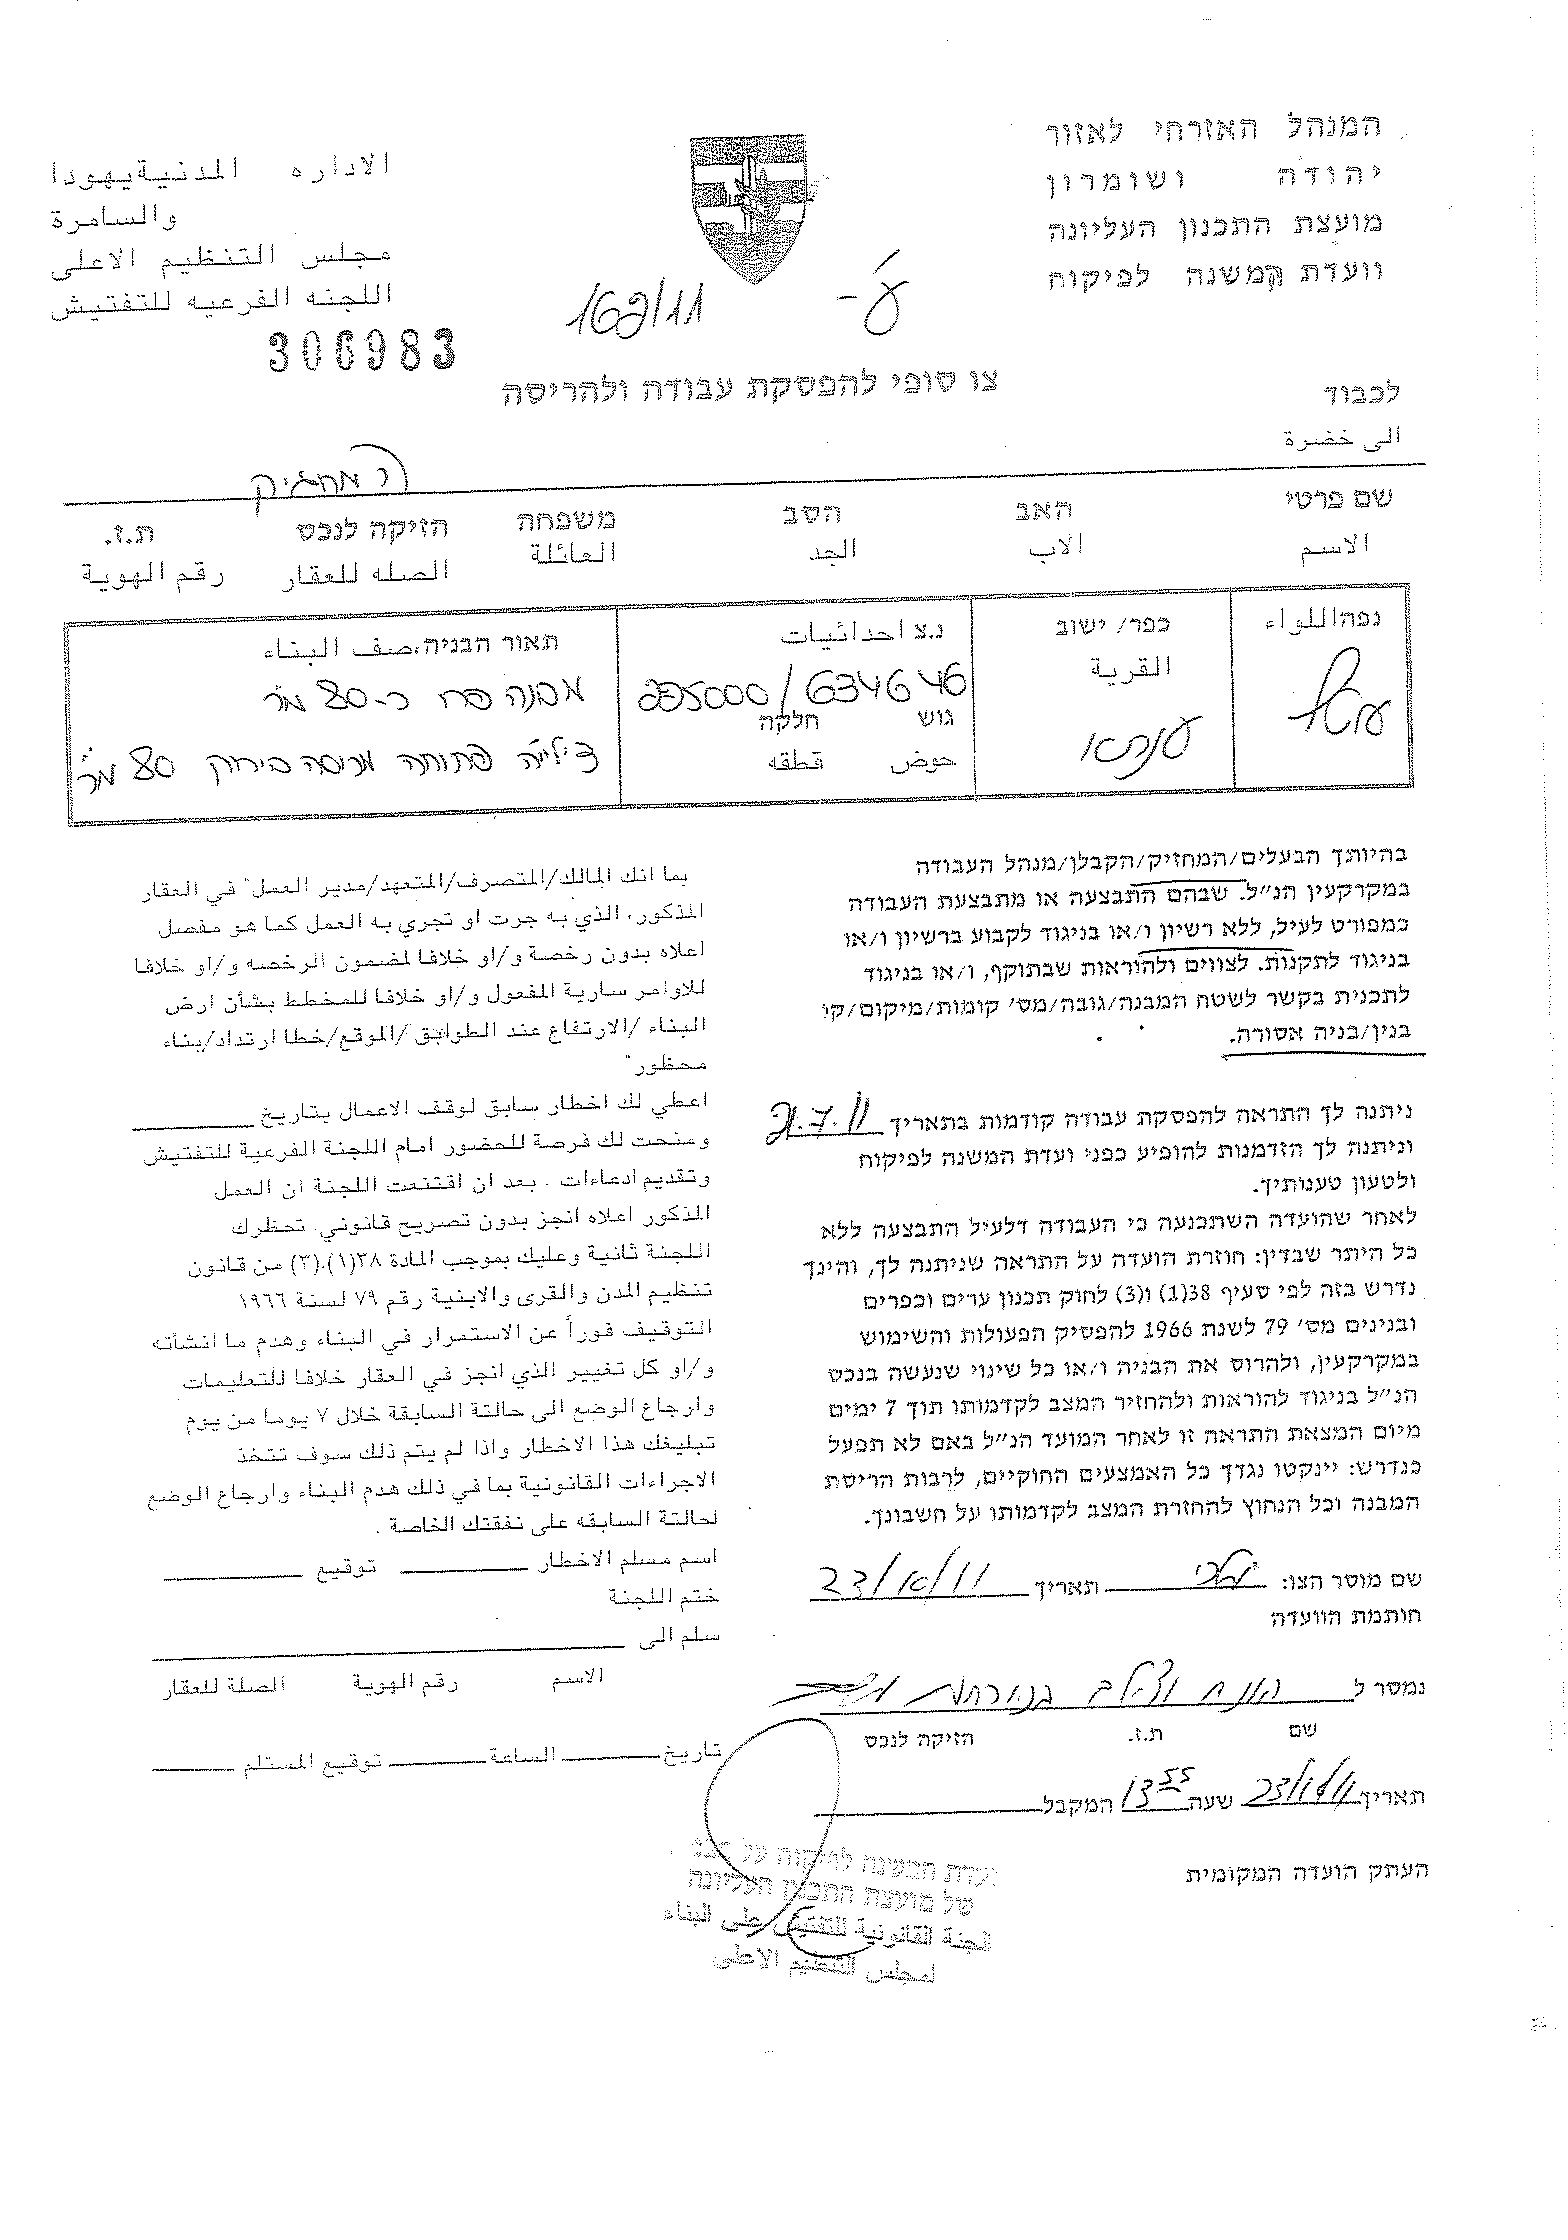 המנהל האזרחי לאזור
יהודה ושומרון
מועצת התכנון העליונה
וועדת המשנה לפיקוח
الاداره المدنية يهودا
والسامرة
مجلس التنظيم الاعلى
اللجنه الفرعيه للتفتيش
306983
169/11
צו סופי להפסקת עבודה ולהריסה
לכבוד
الى خضرة
המחזיק
שם פרטי האב הסב משפחה הזיקה לנכס ת.ז.
الاسم الاب الجد العائلة الصله للعقار رقم الهوية
נפה اللواء
כפר/ ישוב
القرية
ענתא
נ.צ احداثيات
634646/225000
גוש חלקה
حوض قطقه
תאור הבניה، صف البناء
מבנה פח כ-80 מ"ר
פתוחה מכוסה בירוק 80 מ"ר
בהיותך הבעלים/המחזיק/הקבלן/מנהל העבודה
במקרקעין הנ״ל. שבהם התבצעה או מתבצעת העבודה
כמפורט לעיל, ללא רשיון ו/או בניגוד לקבוע ברשיון ו/או
בניגוד לתקנות. לצווים ולהוראות שבתוקף, ו/או בניגוד
לתכנית בקשר לשטח המבנה/גובה/מס׳ קומות/מיקום/קו
בנין/בניה אסורה.
ניתנה לך התראה להפסקת עבודה קודמות בתאריך 21.7.11
וניתנה לך הזדמנות להופיע בפני ועדת המשנה לפיקוח
ולטעון טענותיך.
לאחר שהועדה השתכנעה כי העבודה דלעיל התבצעה ללא
כל היתר שבדין: חוזרת הועדה על התראה שניתנה לך, והינך
נדרש בזה לפי סעיף 38(1) ו(3) לחוק תכנון ערים וכפרים
ובנינים מס׳ 79 לשנת 1966 להפסיק הפעולות והשימוש
במקרקעין, ולהרוס את הבניה ו/או כל שינוי שנעשה בנכס
הנ״ל בניגוד להוראות ולהחזיר המצב לקדמותו תוך 7 ימים
מיום המצאת התראה זו לאחר המועד הנ״ל באם לא תפעל
כנדרש: יינקטו נגדך כל האמצעים החוקיים, לרבות הריסת
המבנה וכל הנחוץ להחזרת המצב לקדמותו על חשבונך.
שם מוסר הצו: תאריך 23/10/11
חותמת הוועדה
נמסר ל
שם ת.ז. הזיקה לנכס
תאריך 23/10/11 שעה 13 55 המקבל
העתק הועדה המקומית
بما انك المالك/المتصرف/المتعهد/مدير العمل" في العقار
المذكور، الذي به جرت او تجري به العمل كما هو مفصل
اعلاه بدون رخصة و/او خلافا لمضمون الرخصه و/او خلافا
للاوامر سارية المفعول و/او خلافا للمخطط بشأن ارض
البناء /الارتفاع عند الطوابق /الموقع/خطا ارتداد/بناء
محظور"
اعطي لك اخطار سابق لوقف الاعمال بتاريخ
ومنحت لك فرصة للحضور امام اللجنة الفرعية للتفتيش
وتقديم ادعاءات . بعد ان اقتنعت اللجنة ان العمل
المذكور اعلاه انجز بدون تصريح قانوني. تحظرك
اللجنة ثانية وعليك بموجب المادة ٣٨(١).(٣) من قانون
تنظيم المدن والقرى والابنية رقم ٧٩ لسنة ١٩٦٦
التوقيف فوراً عن الاستمرار في البناء وهدم ما انشأته
و/او كل تغيير الذي انجز في العقار خلافا للتعليمات
وارجاع الوضع الى حالتة السابقة خلال ٧ يوما من يوم
تبليغك هذا الاخطار واذا لم يتم ذلك سوف تتخذ
الاجراءات القانونية بما في ذلك هدم البناء وارجاع الوضع
لحالتة السابقه على نفقتك الخاصة .
اسم مسلم الاخطار توقيع
ختم اللجنة
سلم الى
الاسم رقم الهوية الصلة للعقار
تاريخ الساعة توقيع المستلم
ועדת המשנה לפיקוח על
של מועצת התכנון העליונה
لجنة القانونية للتفتيش على البناء
لمجلس التنظيم الاعلى